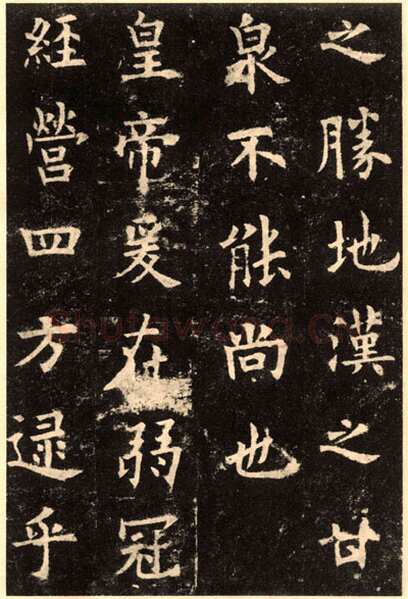 之勝地漢之甘
泉不能尚也
皇帝爰在弱冠
經營四方逯乎